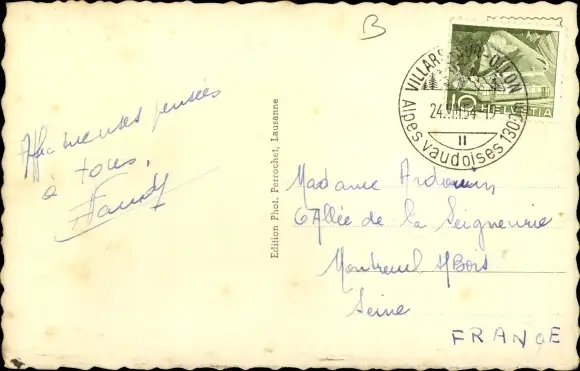 B
Affectueuses pensées
à tous.
Edition Phot. Perrochet, Lausanne
VILLARS-SUR-OLLON
24.VII.54-19
II
Alpes vaudoises 1300m
10 HELVETIA
Madame Ardouin
6 Allée de la Seigneurie
Montreuil s/Bois
Seine
FRANCE